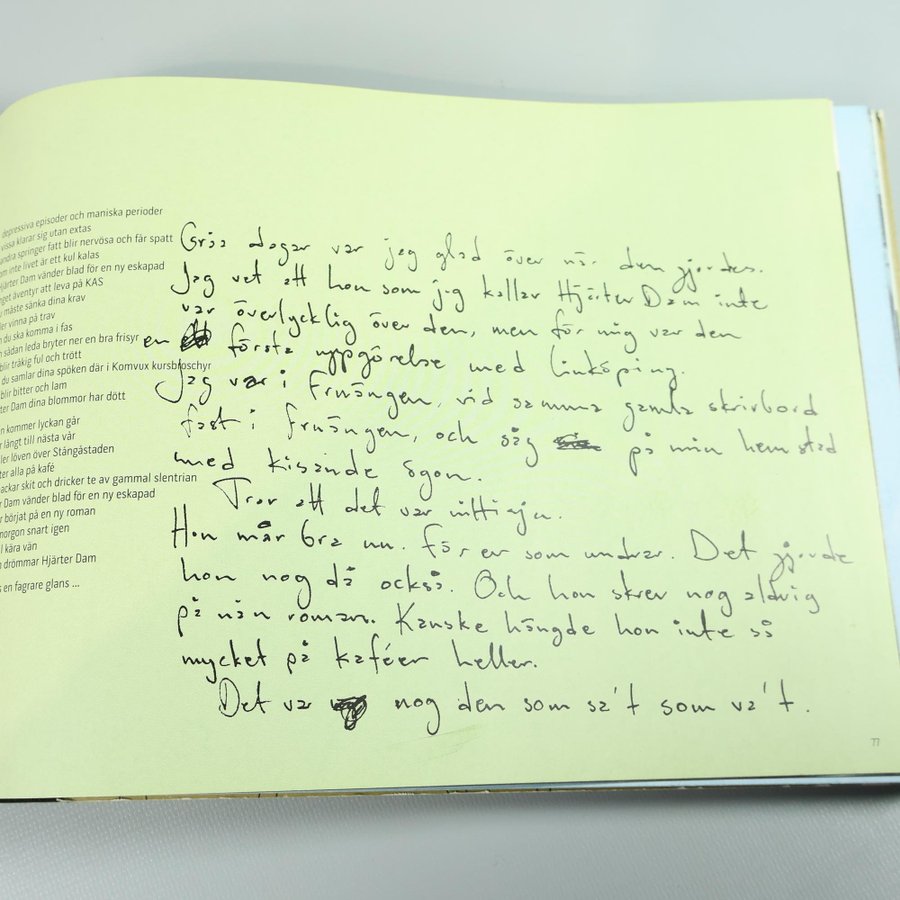 depressiva episoder och maniska perioder
vissa klarar sig utan extas
andra springer fatt blir nervösa och får spatt
om inte livet är ett kul kalas
Hjärter Dam vänder blad för en ny eskapad
inget äventyr att leva på KAS
du måste sänka dina krav
eller vinna på trav
om du ska komma i fas
sådan leda bryter ner en bra frisyr
blir tråkig ful och trött
du samlar dina spöken där i Komvux kursbroschyr
blir bitter och lam
dina blommor har dött
kommer lyckan går
långt till nästa vår
löven över Stångåstaden
alla på kafé
skit och dricker te av gammal slentrian
Dam vänder blad för en ny eskapad
börjat på en ny roman
morgon snart igen
kära vän
drömmar Hjärter Dam
en fagrare glans ...
Gråa dagar var jag glad över när den gjordes.
Jag vet att hon som jag kallar Hjärter Dam inte
var överlycklig över den, men för mig var den
en första uppgörelse med Linköping.
Jag var i Fruängen, vid samma gamla skrivbord
fast i Fruängen, och såg på min hemstad
med kisande ögon.
Tror att det var nittiosju.
Hon mår bra nu. För er som undrar. Det gjorde
hon nog då också. Och hon skrev nog aldrig
på nån roman. Kanske hängde hon inte så
mycket på kaféer heller.
Det var nog den som sa't som va't.
77